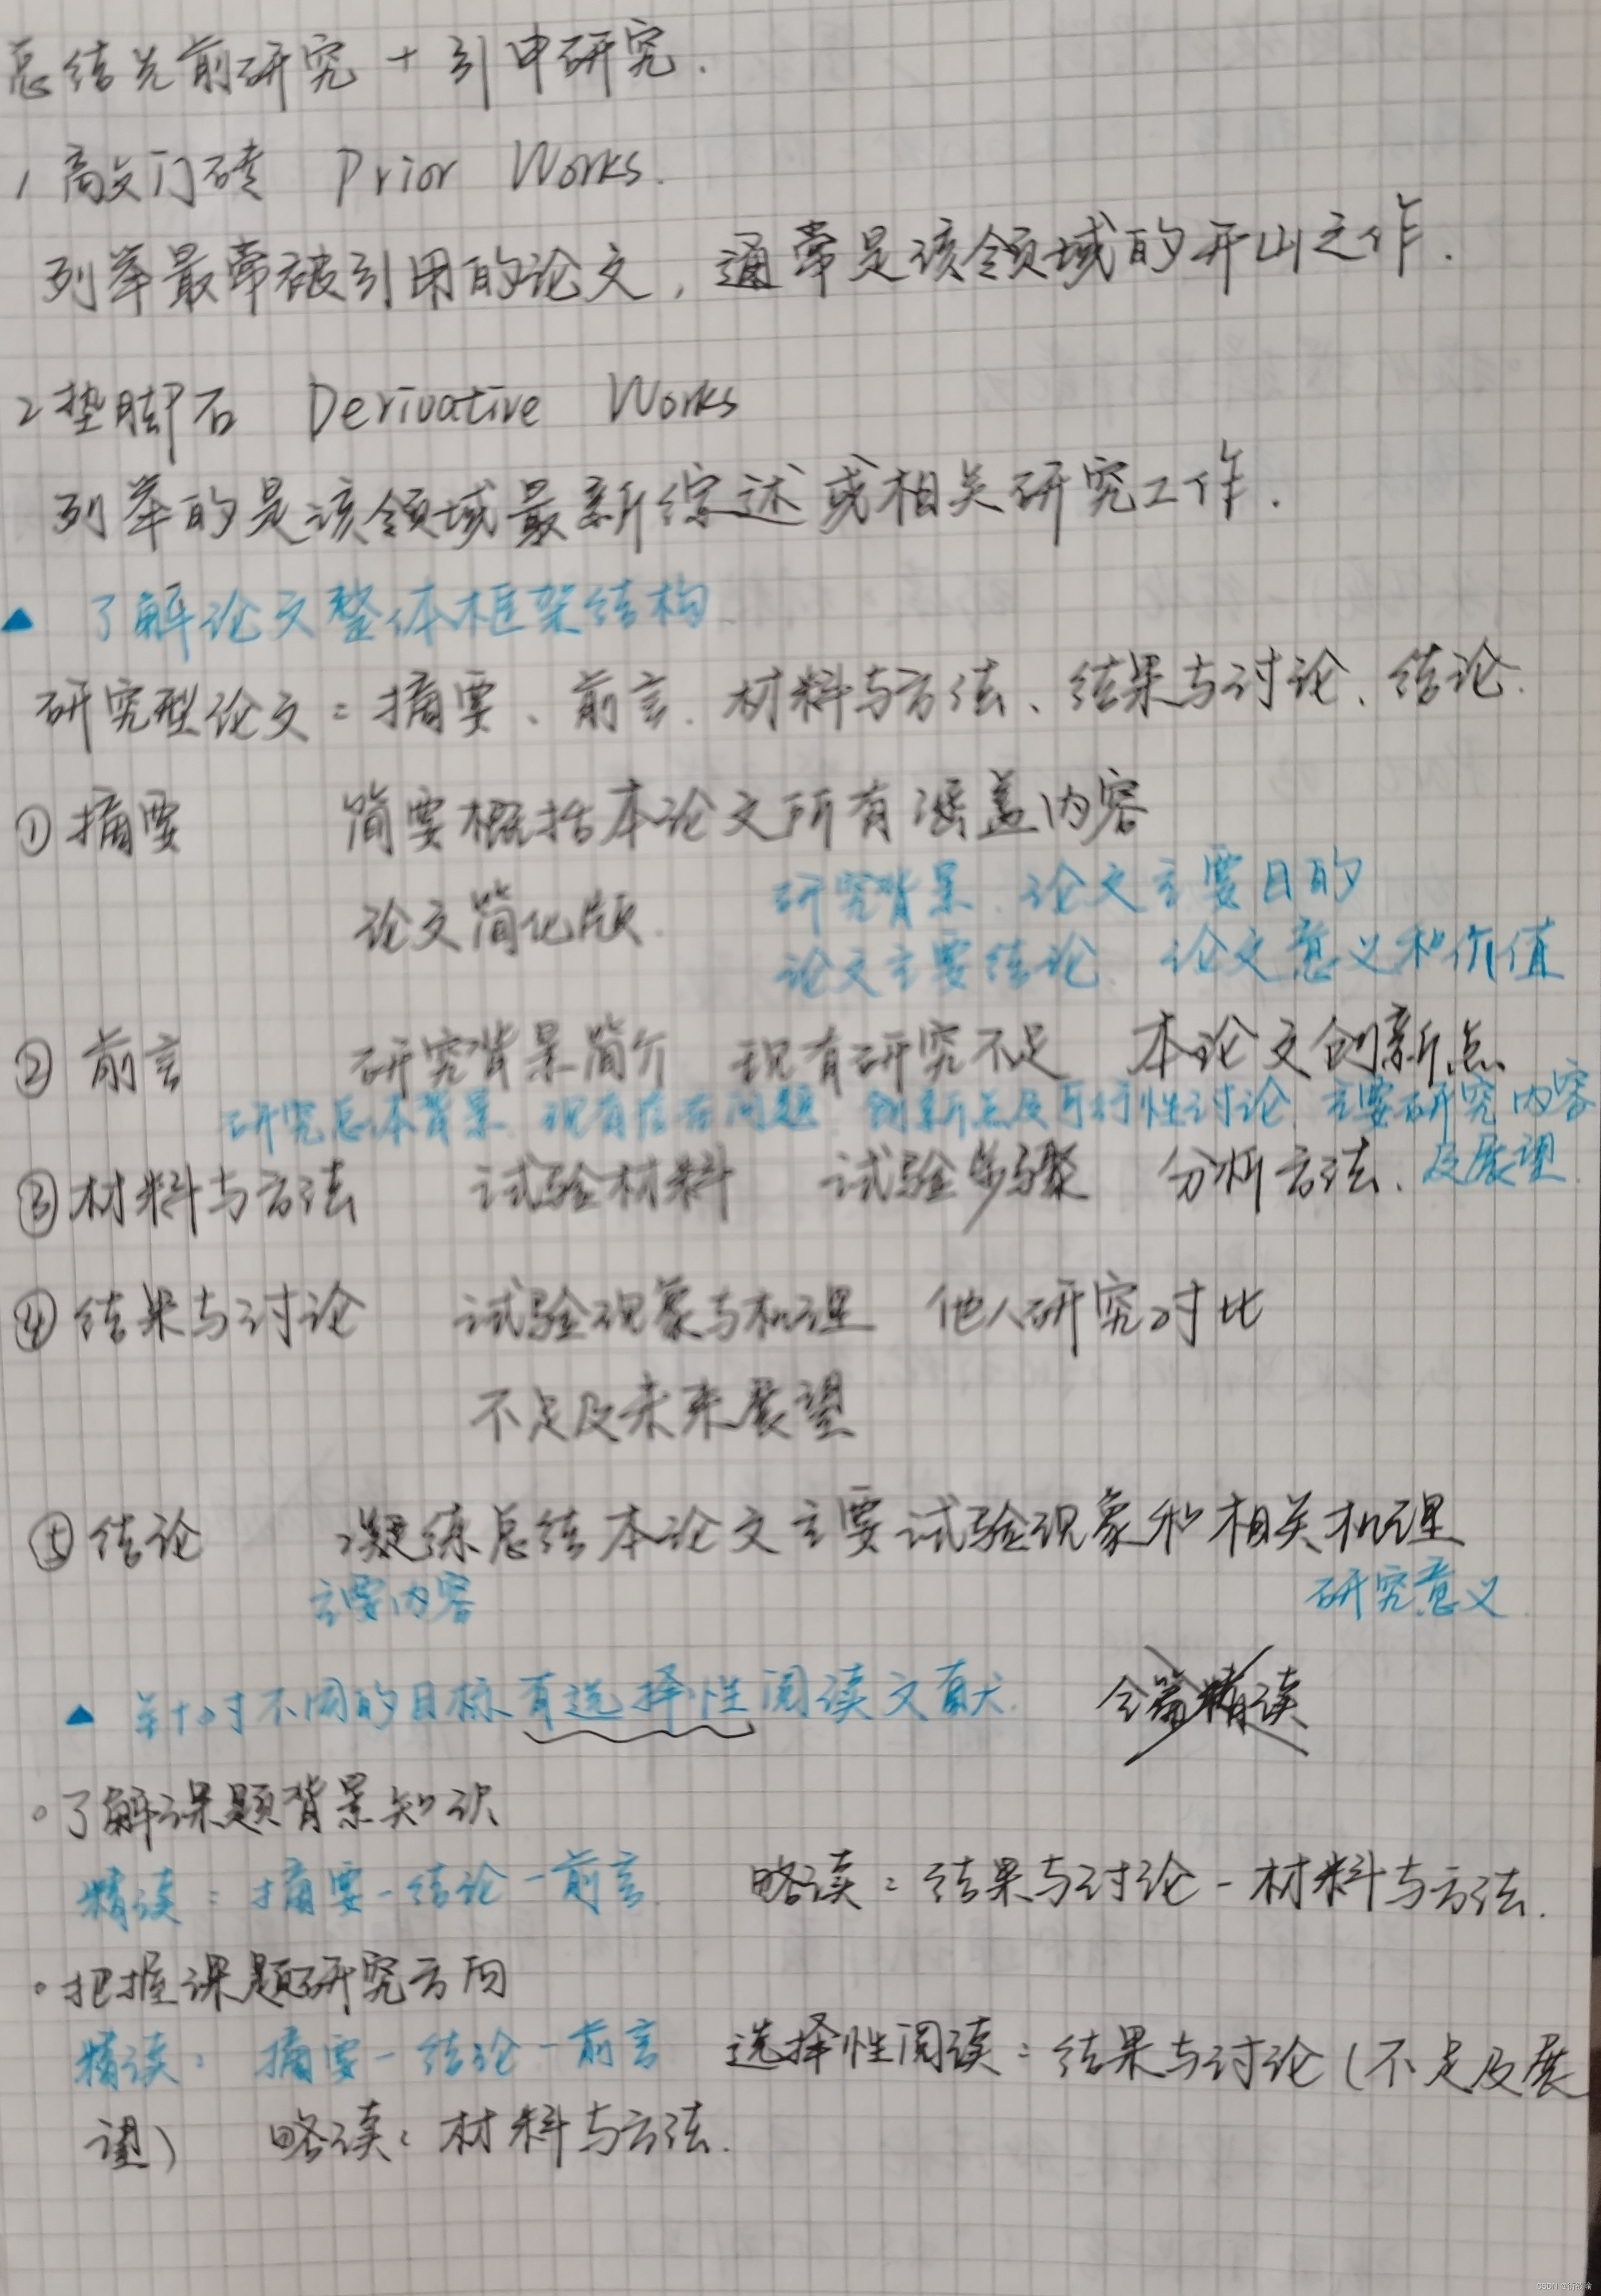 总结先前研究 + 引申研究.
1 敲门砖 Prior Works.
列举最常被引用的论文, 通常是该领域的开山之作.
2 垫脚石 Derivative Works
列举的是该领域最新综述或相关研究工作.
▲ 了解论文整体框架结构
研究型论文: 摘要、前言、材料与方法、结果与讨论、结论.
① 摘要 简要概括本论文所有涵盖内容
论文简化版. 研究背景、论文主要目的
论文主要结论、论文意义和价值
② 前言 研究背景简介 现有研究不足 本论文创新点
研究总体背景、现有存在问题、创新点及可行性讨论、主要研究内容
及展望.
③ 材料与方法 试验材料 试验步骤 分析方法.
④ 结果与讨论 试验现象与机理 他人研究对比
不足及未来展望
⑤ 结论 凝练总结本论文主要试验现象和相关机理
主要内容 研究意义
▲ 针对不同的目标有选择性阅读文献. 全篇精读
◦了解课题背景知识
精读: 摘要-结论-前言. 略读: 结果与讨论-材料与方法.
◦把握课题研究方向
精读: 摘要-结论-前言 选择性阅读: 结果与讨论(不足及展
望) 略读: 材料与方法.